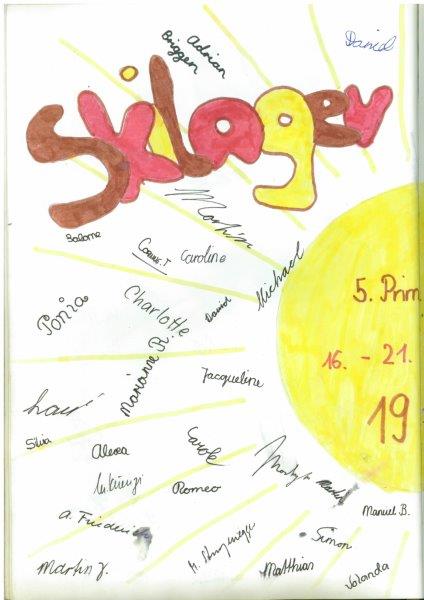 Adrian
Biggen
David
Skilager
Martin
Salome
Corine.T
Caroline
Michael
5. Prim
Charlotte
David
Marianne R.
16. - 21.
Jacqueline
19
Silvia
Alexa
Carole
Romeo
Manuel B.
A. Friederich
Simon
Martin J.
Matthias
Yolanda